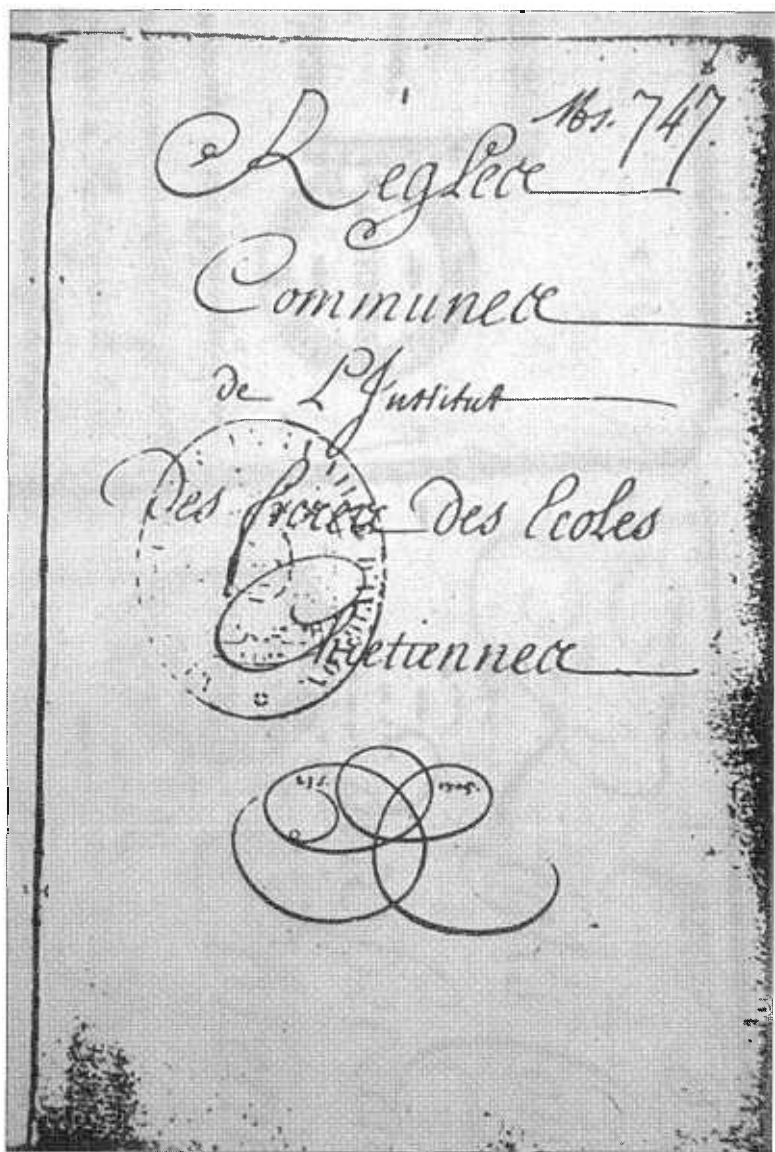 Ms. 747
Regles
Communes
de L'Institut
des freres des Ecoles
Chretiennes
1705.